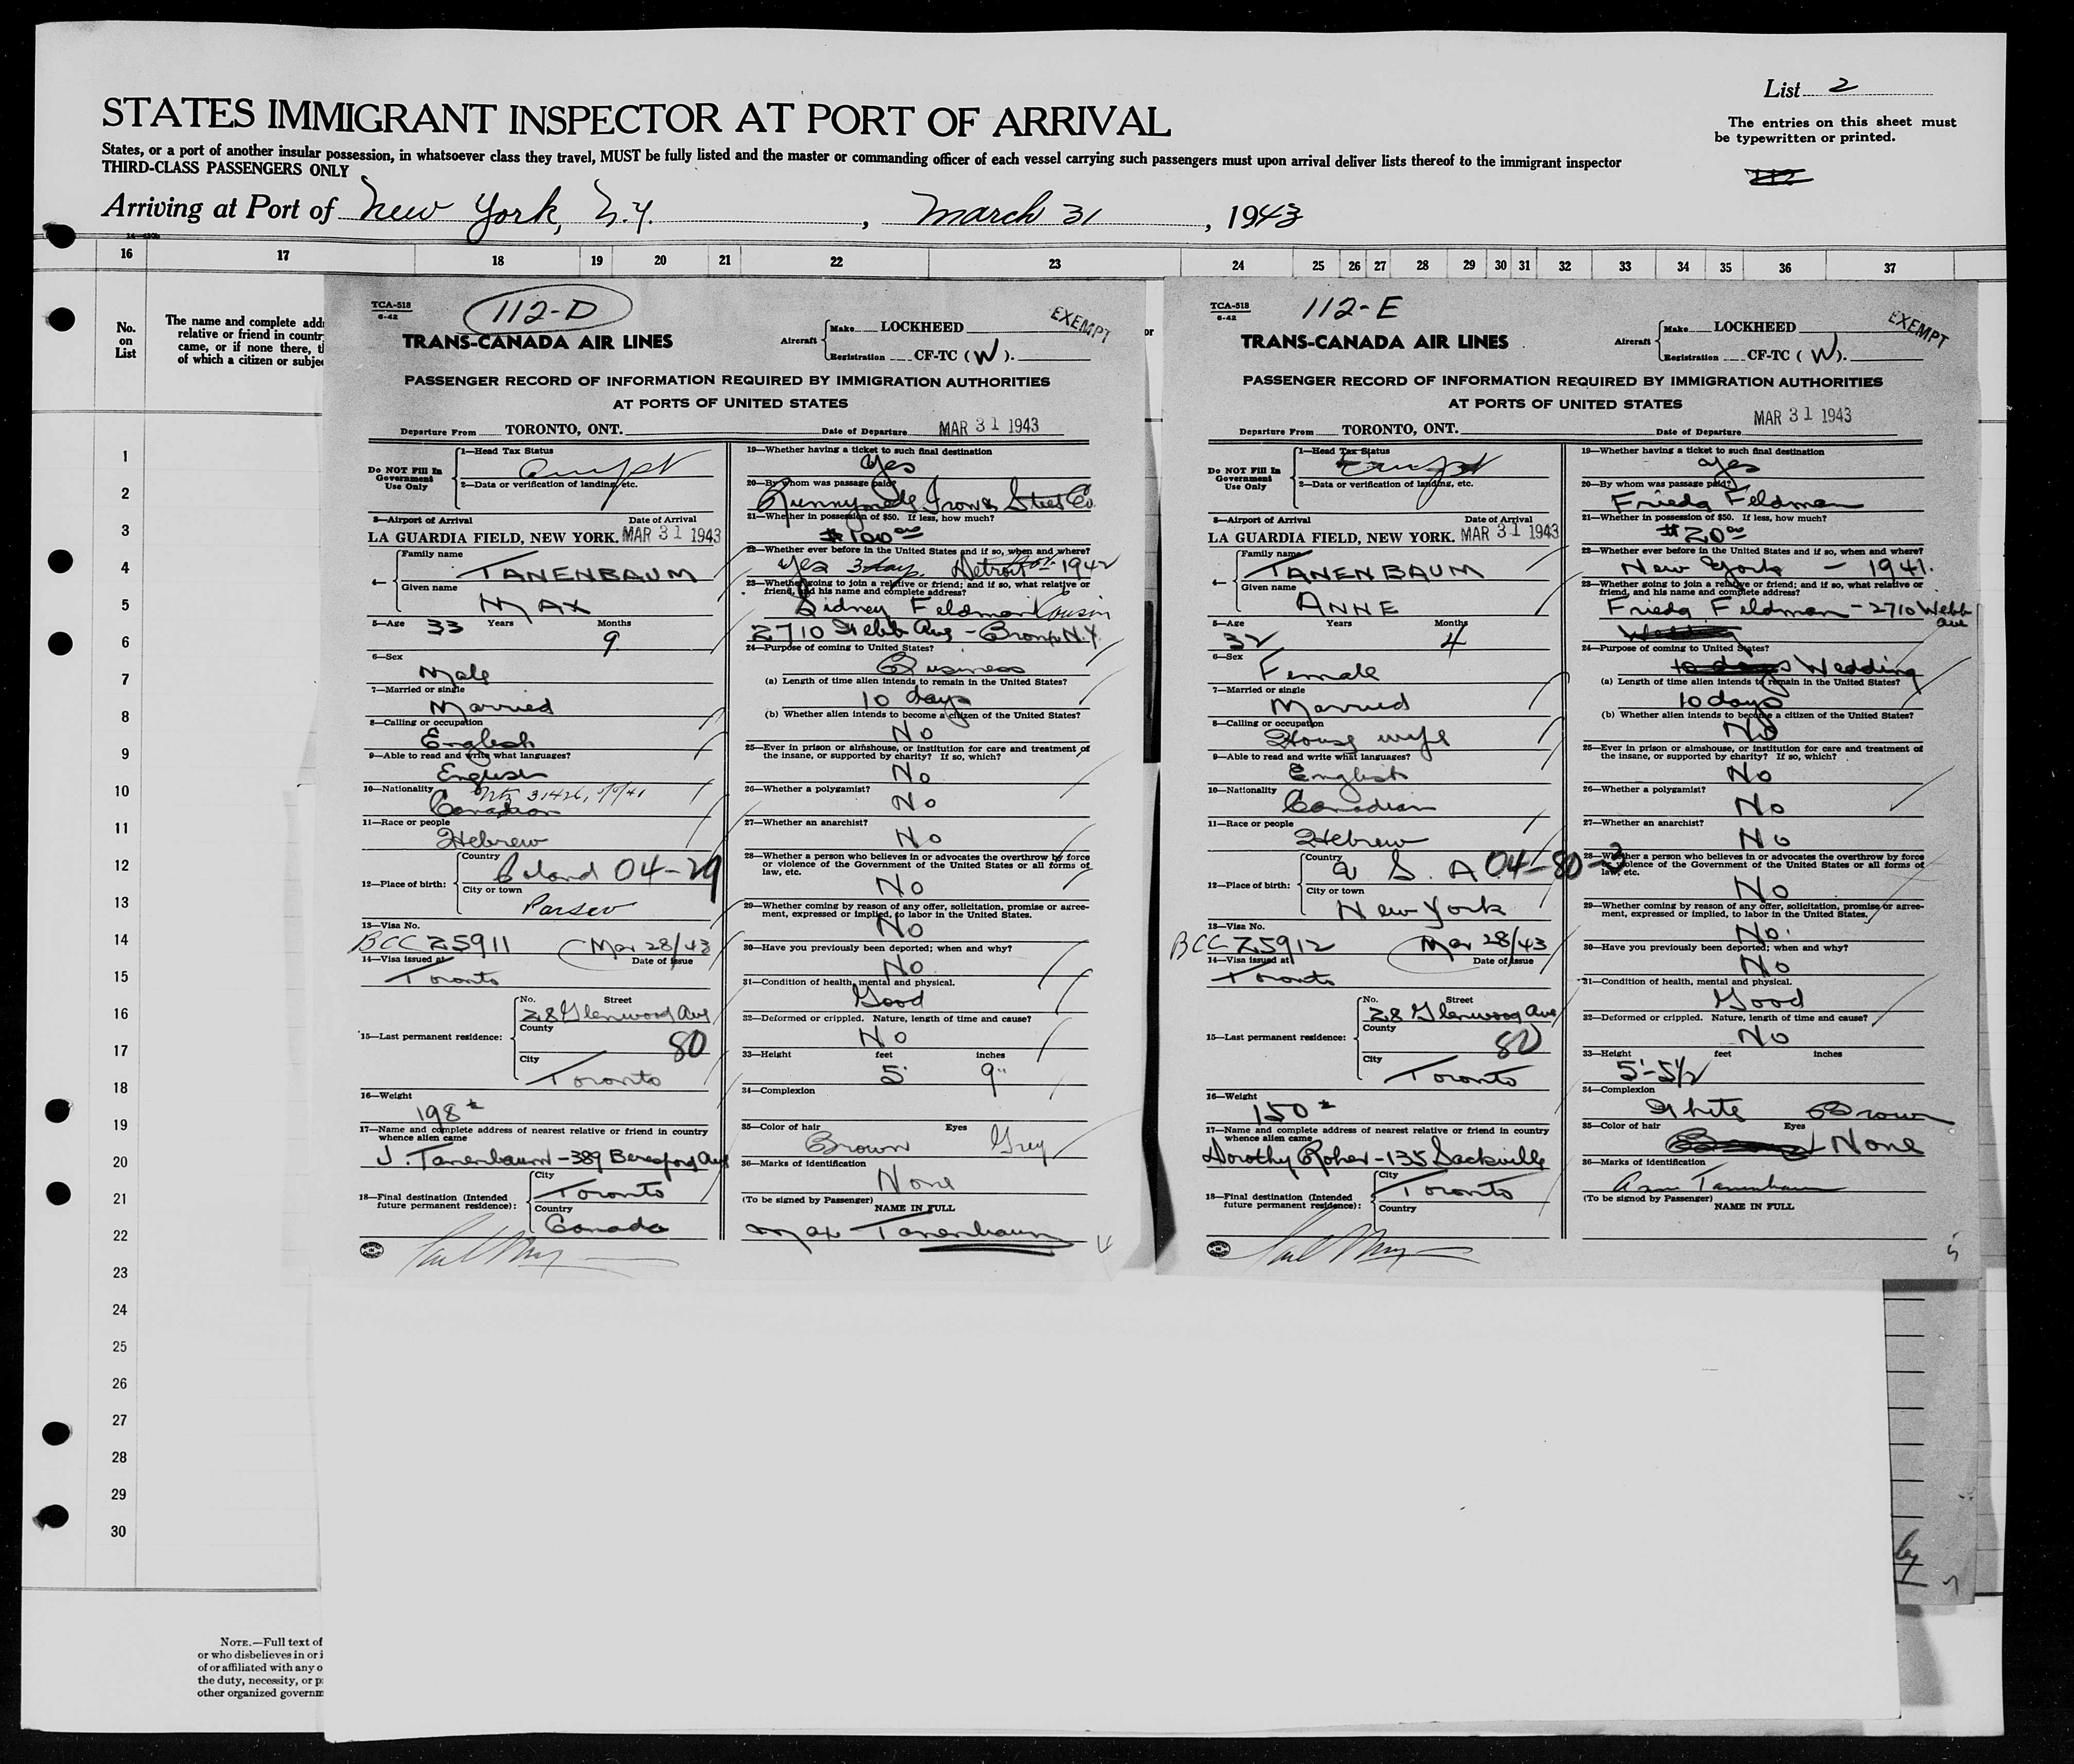 List 2
STATES IMMIGRANT INSPECTOR AT PORT OF ARRIVAL
The entries on this sheet must
be typewritten or printed.
States, or a port of another insular possession, in whatsoever class they travel, MUST be fully listed and the master or commanding officer of each vessel carrying such passengers must upon arrival deliver lists thereof to the immigrant inspector
THIRD-CLASS PASSENGERS ONLY
Arriving at Port of New York, N.Y., March 31, 1943
16 17 18 19 20 21 22 23 24 25 26 27 28 29 30 31 32 33 34 35 36 37
No.
on
List
The name and complete add
relative or friend in countr
came, or if none there, t
of which a citizen or subje
or
1
2
3
4
5
6
7
8
9
10
11
12
13
14
15
16
17
18
19
20
21
22
23
24
25
26
27
28
29
30
NOTE.—Full text of
or who disbelieves in or i
of or affiliated with any o
the duty, necessity, or p
other organized governm
TCA-518
6-42
112-D
TRANS-CANADA AIR LINES
Aircraft Make LOCKHEED
Registration CF-TC (W).
EXEMPT
PASSENGER RECORD OF INFORMATION REQUIRED BY IMMIGRATION AUTHORITIES
AT PORTS OF UNITED STATES
Departure From TORONTO, ONT. Date of Departure MAR 31 1943
Do NOT Fill In
Government
Use Only
1—Head Tax Status
2—Data or verification of landing, etc.
3—Airport of Arrival Date of Arrival
LA GUARDIA FIELD, NEW YORK. MAR 31 1943
4—
Family name
TANENBAUM
Given name
MAX
5—Age 33 Years Months 9
6—Sex
Male
7—Married or single
Married
8—Calling or occupation
English
9—Able to read and write what languages?
English
10—Nationality
Canadian
11—Race or people
Hebrew
12—Place of birth:
Country
Poland 04-29
City or town
Parsev
13—Visa No.
BCC 25911 Mar 28/43
14—Visa issued at Date of issue
Toronto
15—Last permanent residence:
No. Street
28 Glenwood Ave
County
80
City
Toronto
16—Weight
198
17—Name and complete address of nearest relative or friend in country
whence alien came
J. Tanenbaum - 389 Beresford Ave
18—Final destination (Intended
future permanent residence):
City
Toronto
Country
Canada
19—Whether having a ticket to such final destination
Yes
20—By whom was passage paid?
Runnymede Iron & Steel Co.
21—Whether in possession of $50. If less, how much?
$100.00
22—Whether ever before in the United States and if so, when and where?
Yes 3 days Detroit 1942
23—Whether going to join a relative or friend; and if so, what relative or
friend, and his name and complete address?
Sidney Feldman Cousin
2710 Webb Ave - Bronx N.Y.
24—Purpose of coming to United States?
Business
(a) Length of time alien intends to remain in the United States?
10 days
(b) Whether alien intends to become a citizen of the United States?
No
25—Ever in prison or almshouse, or institution for care and treatment of
the insane, or supported by charity? If so, which?
No
26—Whether a polygamist?
No
27—Whether an anarchist?
No
28—Whether a person who believes in or advocates the overthrow by force
or violence of the Government of the United States or all forms of
law, etc.
No
29—Whether coming by reason of any offer, solicitation, promise or agree-
ment, expressed or implied, to labor in the United States.
No
30—Have you previously been deported; when and why?
No
31—Condition of health, mental and physical.
Good
32—Deformed or crippled. Nature, length of time and cause?
No
33—Height feet inches
5' 9"
34—Complexion
35—Color of hair Eyes
Brown Grey
36—Marks of identification
None
(To be signed by Passenger) NAME IN FULL
Max Tanenbaum
4
TCA-518
6-42
112-E
TRANS-CANADA AIR LINES
Aircraft Make LOCKHEED
Registration CF-TC (W).
EXEMPT
PASSENGER RECORD OF INFORMATION REQUIRED BY IMMIGRATION AUTHORITIES
AT PORTS OF UNITED STATES
Departure From TORONTO, ONT. Date of Departure MAR 31 1943
Do NOT Fill In
Government
Use Only
1—Head Tax Status
2—Data or verification of landing, etc.
3—Airport of Arrival Date of Arrival
LA GUARDIA FIELD, NEW YORK. MAR 31 1943
4—
Family name
TANENBAUM
Given name
ANNE
5—Age 32 Years Months 4
6—Sex
Female
7—Married or single
Married
8—Calling or occupation
House wife
9—Able to read and write what languages?
English
10—Nationality
Canadian
11—Race or people
Hebrew
12—Place of birth:
Country
U.S.A 04-80-3
City or town
New York
13—Visa No.
BCC 25912 Mar 28/43
14—Visa issued at Date of issue
Toronto
15—Last permanent residence:
No. Street
28 Glenwood Ave
County
80
City
Toronto
16—Weight
150
17—Name and complete address of nearest relative or friend in country
whence alien came
Dorothy Roher - 135 Sackville
18—Final destination (Intended
future permanent residence):
City
Toronto
Country
19—Whether having a ticket to such final destination
Yes
20—By whom was passage paid?
Frieda Feldman
21—Whether in possession of $50. If less, how much?
$20.00
22—Whether ever before in the United States and if so, when and where?
New York - 1941.
23—Whether going to join a relative or friend; and if so, what relative or
friend, and his name and complete address?
Frieda Feldman - 2710 Webb
Ave
Wedding
24—Purpose of coming to United States?
10 days Wedding
(a) Length of time alien intends to remain in the United States?
10 days
(b) Whether alien intends to become a citizen of the United States?
No
25—Ever in prison or almshouse, or institution for care and treatment of
the insane, or supported by charity? If so, which?
No
26—Whether a polygamist?
No
27—Whether an anarchist?
No
28—Whether a person who believes in or advocates the overthrow by force
or violence of the Government of the United States or all forms of
law, etc.
No
29—Whether coming by reason of any offer, solicitation, promise or agree-
ment, expressed or implied, to labor in the United States.
No.
30—Have you previously been deported; when and why?
No
31—Condition of health, mental and physical.
Good
32—Deformed or crippled. Nature, length of time and cause?
No
33—Height feet inches
5'-5½
34—Complexion
White Brown
35—Color of hair Eyes
None
36—Marks of identification
Anne Tanenbaum
(To be signed by Passenger) NAME IN FULL
5